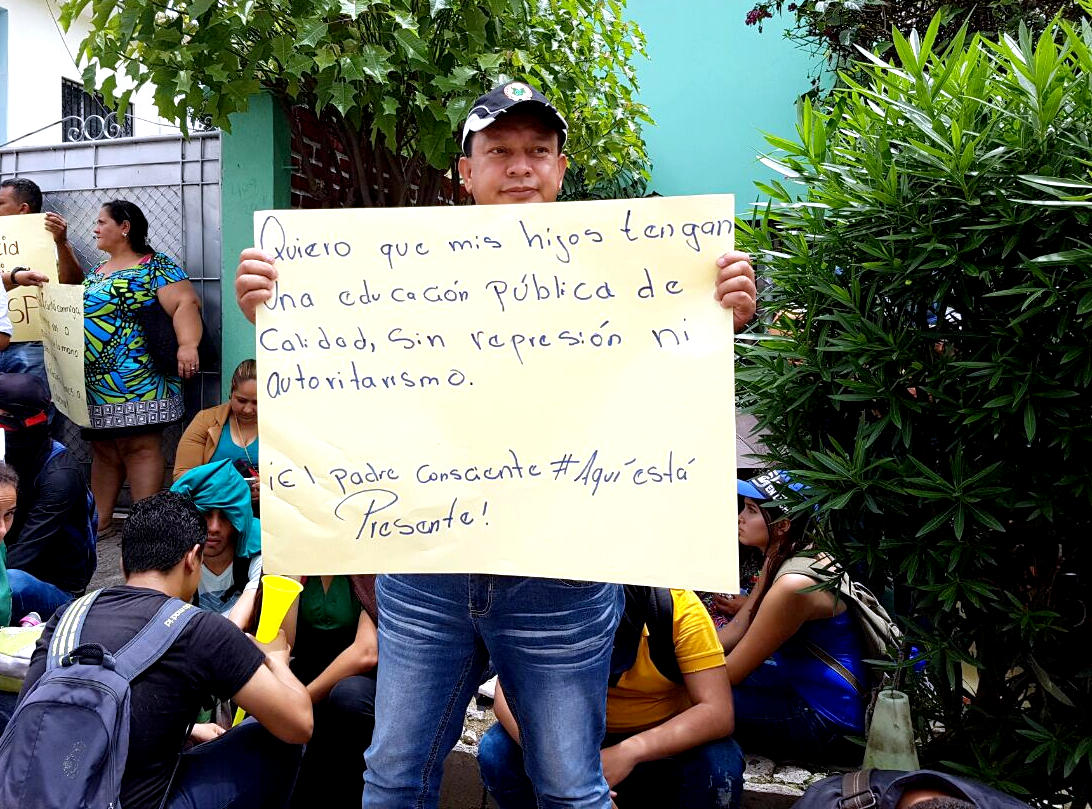 Quiero que mis hijos tengan
Una educación pública de
Calidad, Sin represión ni
autoritarismo.
¡El padre Consciente #Aquí está
Presente!
cia
SF